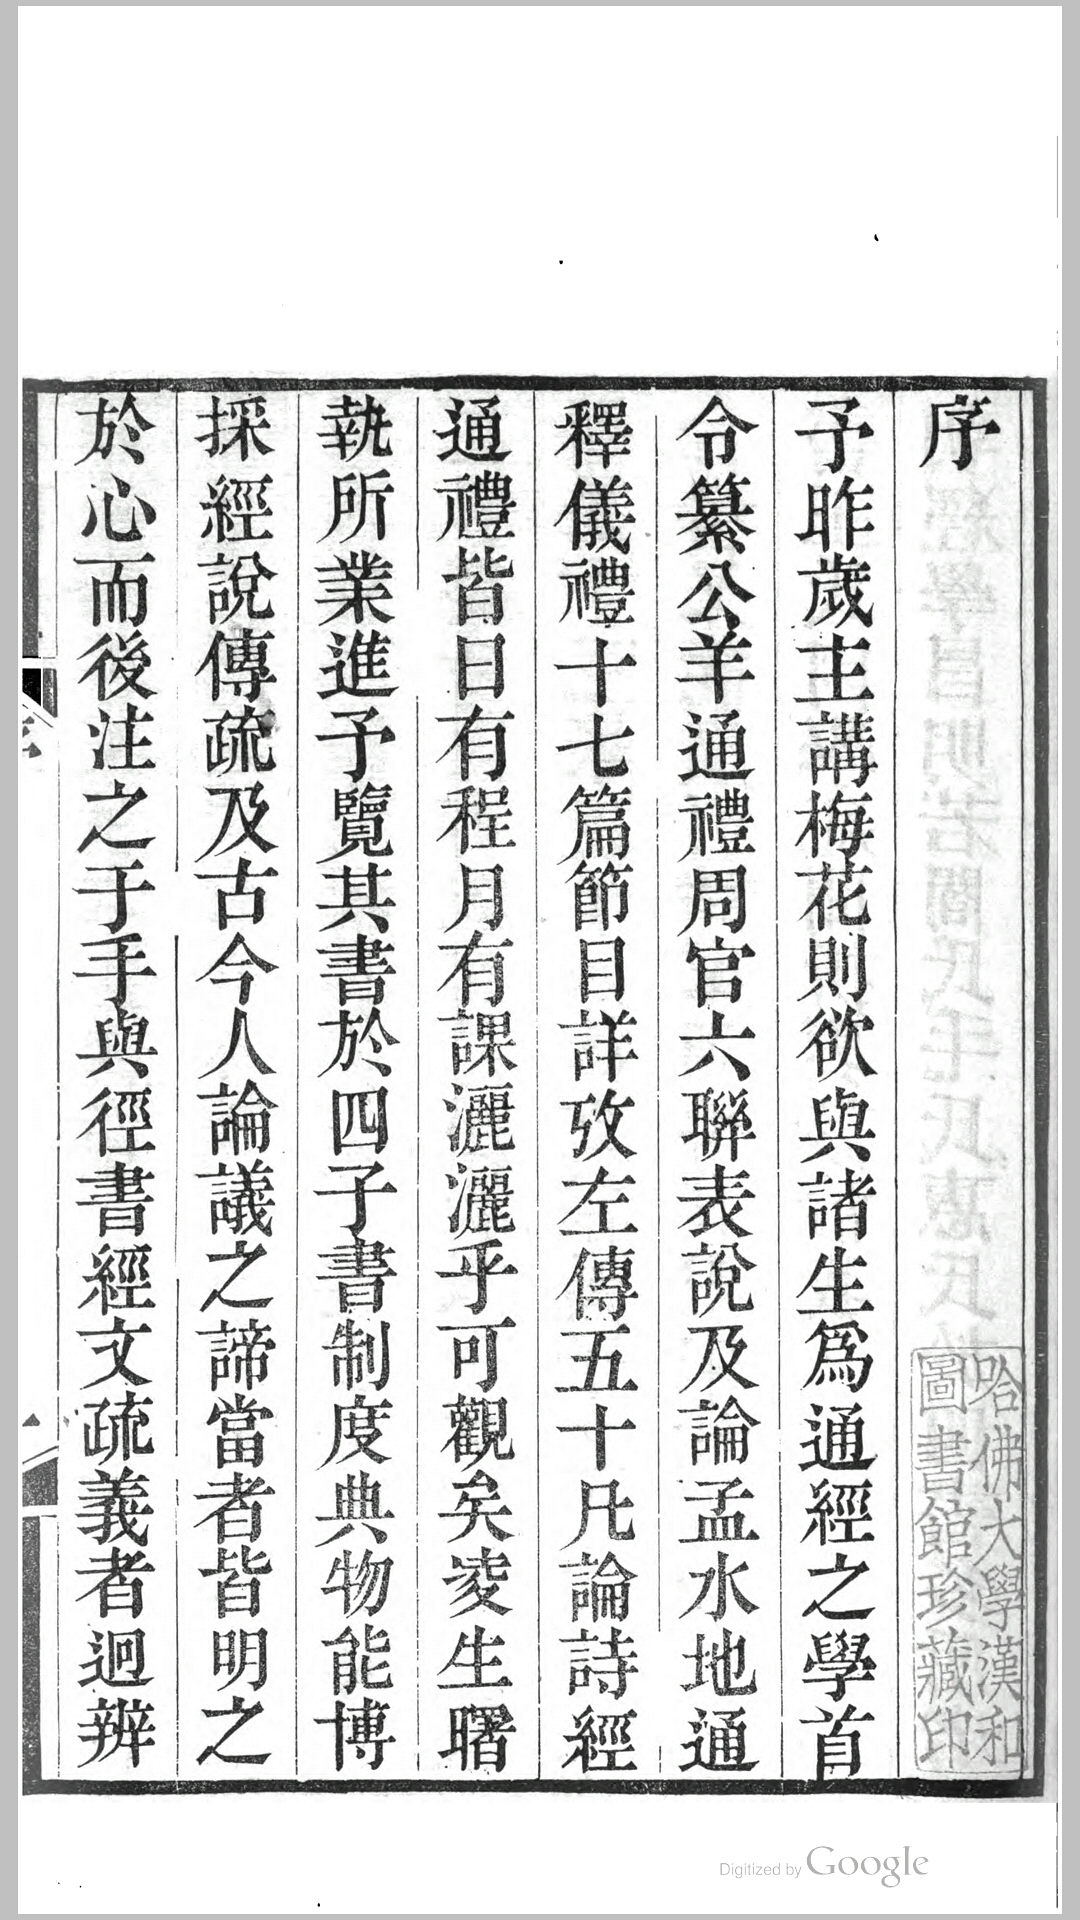 序
予昨歲主講梅花則欲與諸生爲通經之學首
令纂公羊通禮周官六聯表說及論孟水地通
釋儀禮十七篇節目詳攷左傳五十凡論詩經
通禮皆日有程月有課灑灑乎可觀矣凌生曙
執所業進予覽其書於四子書制度典物能博
採經說傳疏及古今人論議之諦當者皆明之
於心而後注之于手與徑書經文疏義者迥辨
哈佛大學漢和
圖書館珍藏印
Digitized by Google